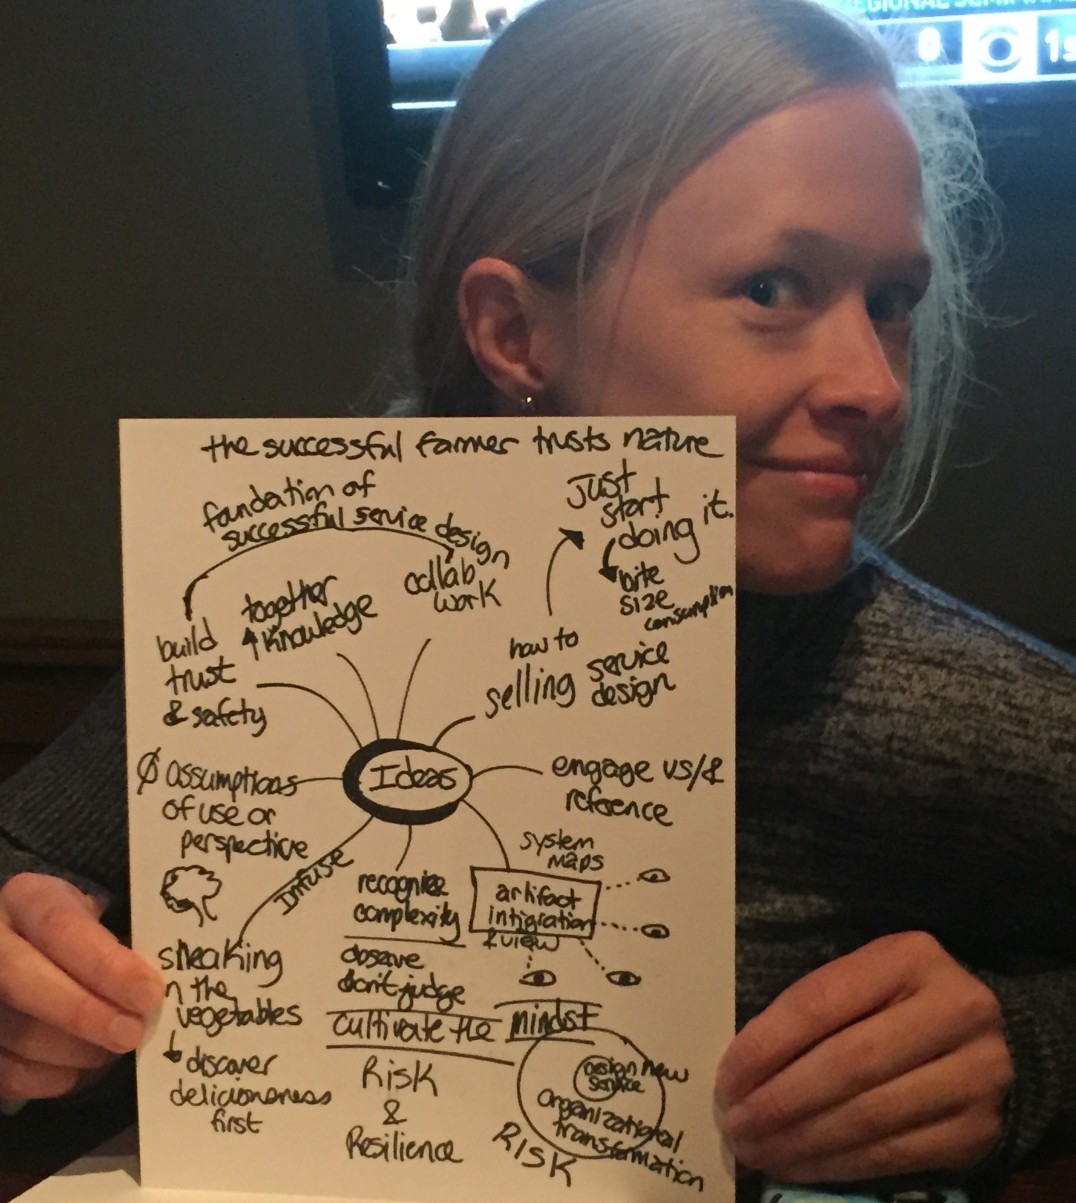 REGIONAL SEMI
0
1s
the successful farmer trusts nature
foundation of
successful service design
Just
start
doing it.
bite
size
consumption
collab
work
together
↑ knowledge
build
trust
& safety
how to
selling service
design
Ideas
Ø assumptions
of use or
perspective
engage us/&
reference
system
maps
artifact
intigration
& view
infuse
recognize
complexity
sneaking
n the
vegetables
discover
deliciousness
first
observe
don't judge
cultivate the mindst
Risk
&
Resilience
design new
service
organizational
transformation
RISK